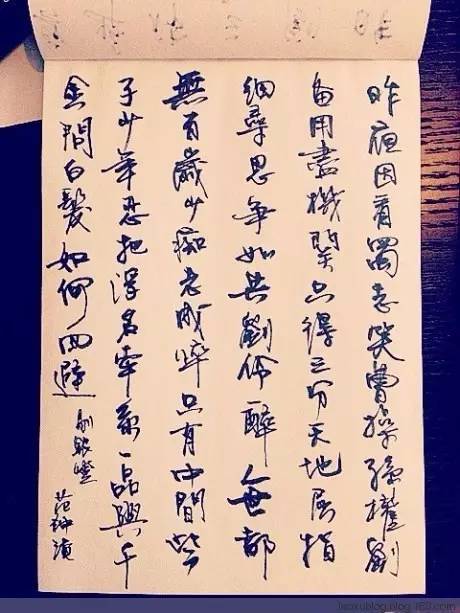 昨夜因看蜀志笑曹操孫權劉
备用盡機關只得三分天地屈指
細尋思爭如共劉伶醉人世都
無百歲少痴老成瘁只有中間些
子少年忍把浮名牽系一品與千
金問白髮如何回避 剔銀燈 范仲淹